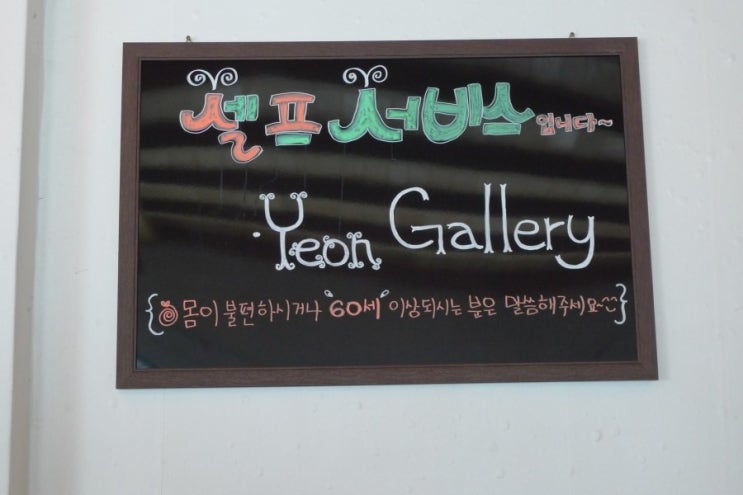 셀프 서비스 입니다~
Yeon Gallery
{몸이 불편하시거나 '60세' 이상되시는 분은 말씀해주세요~^^}